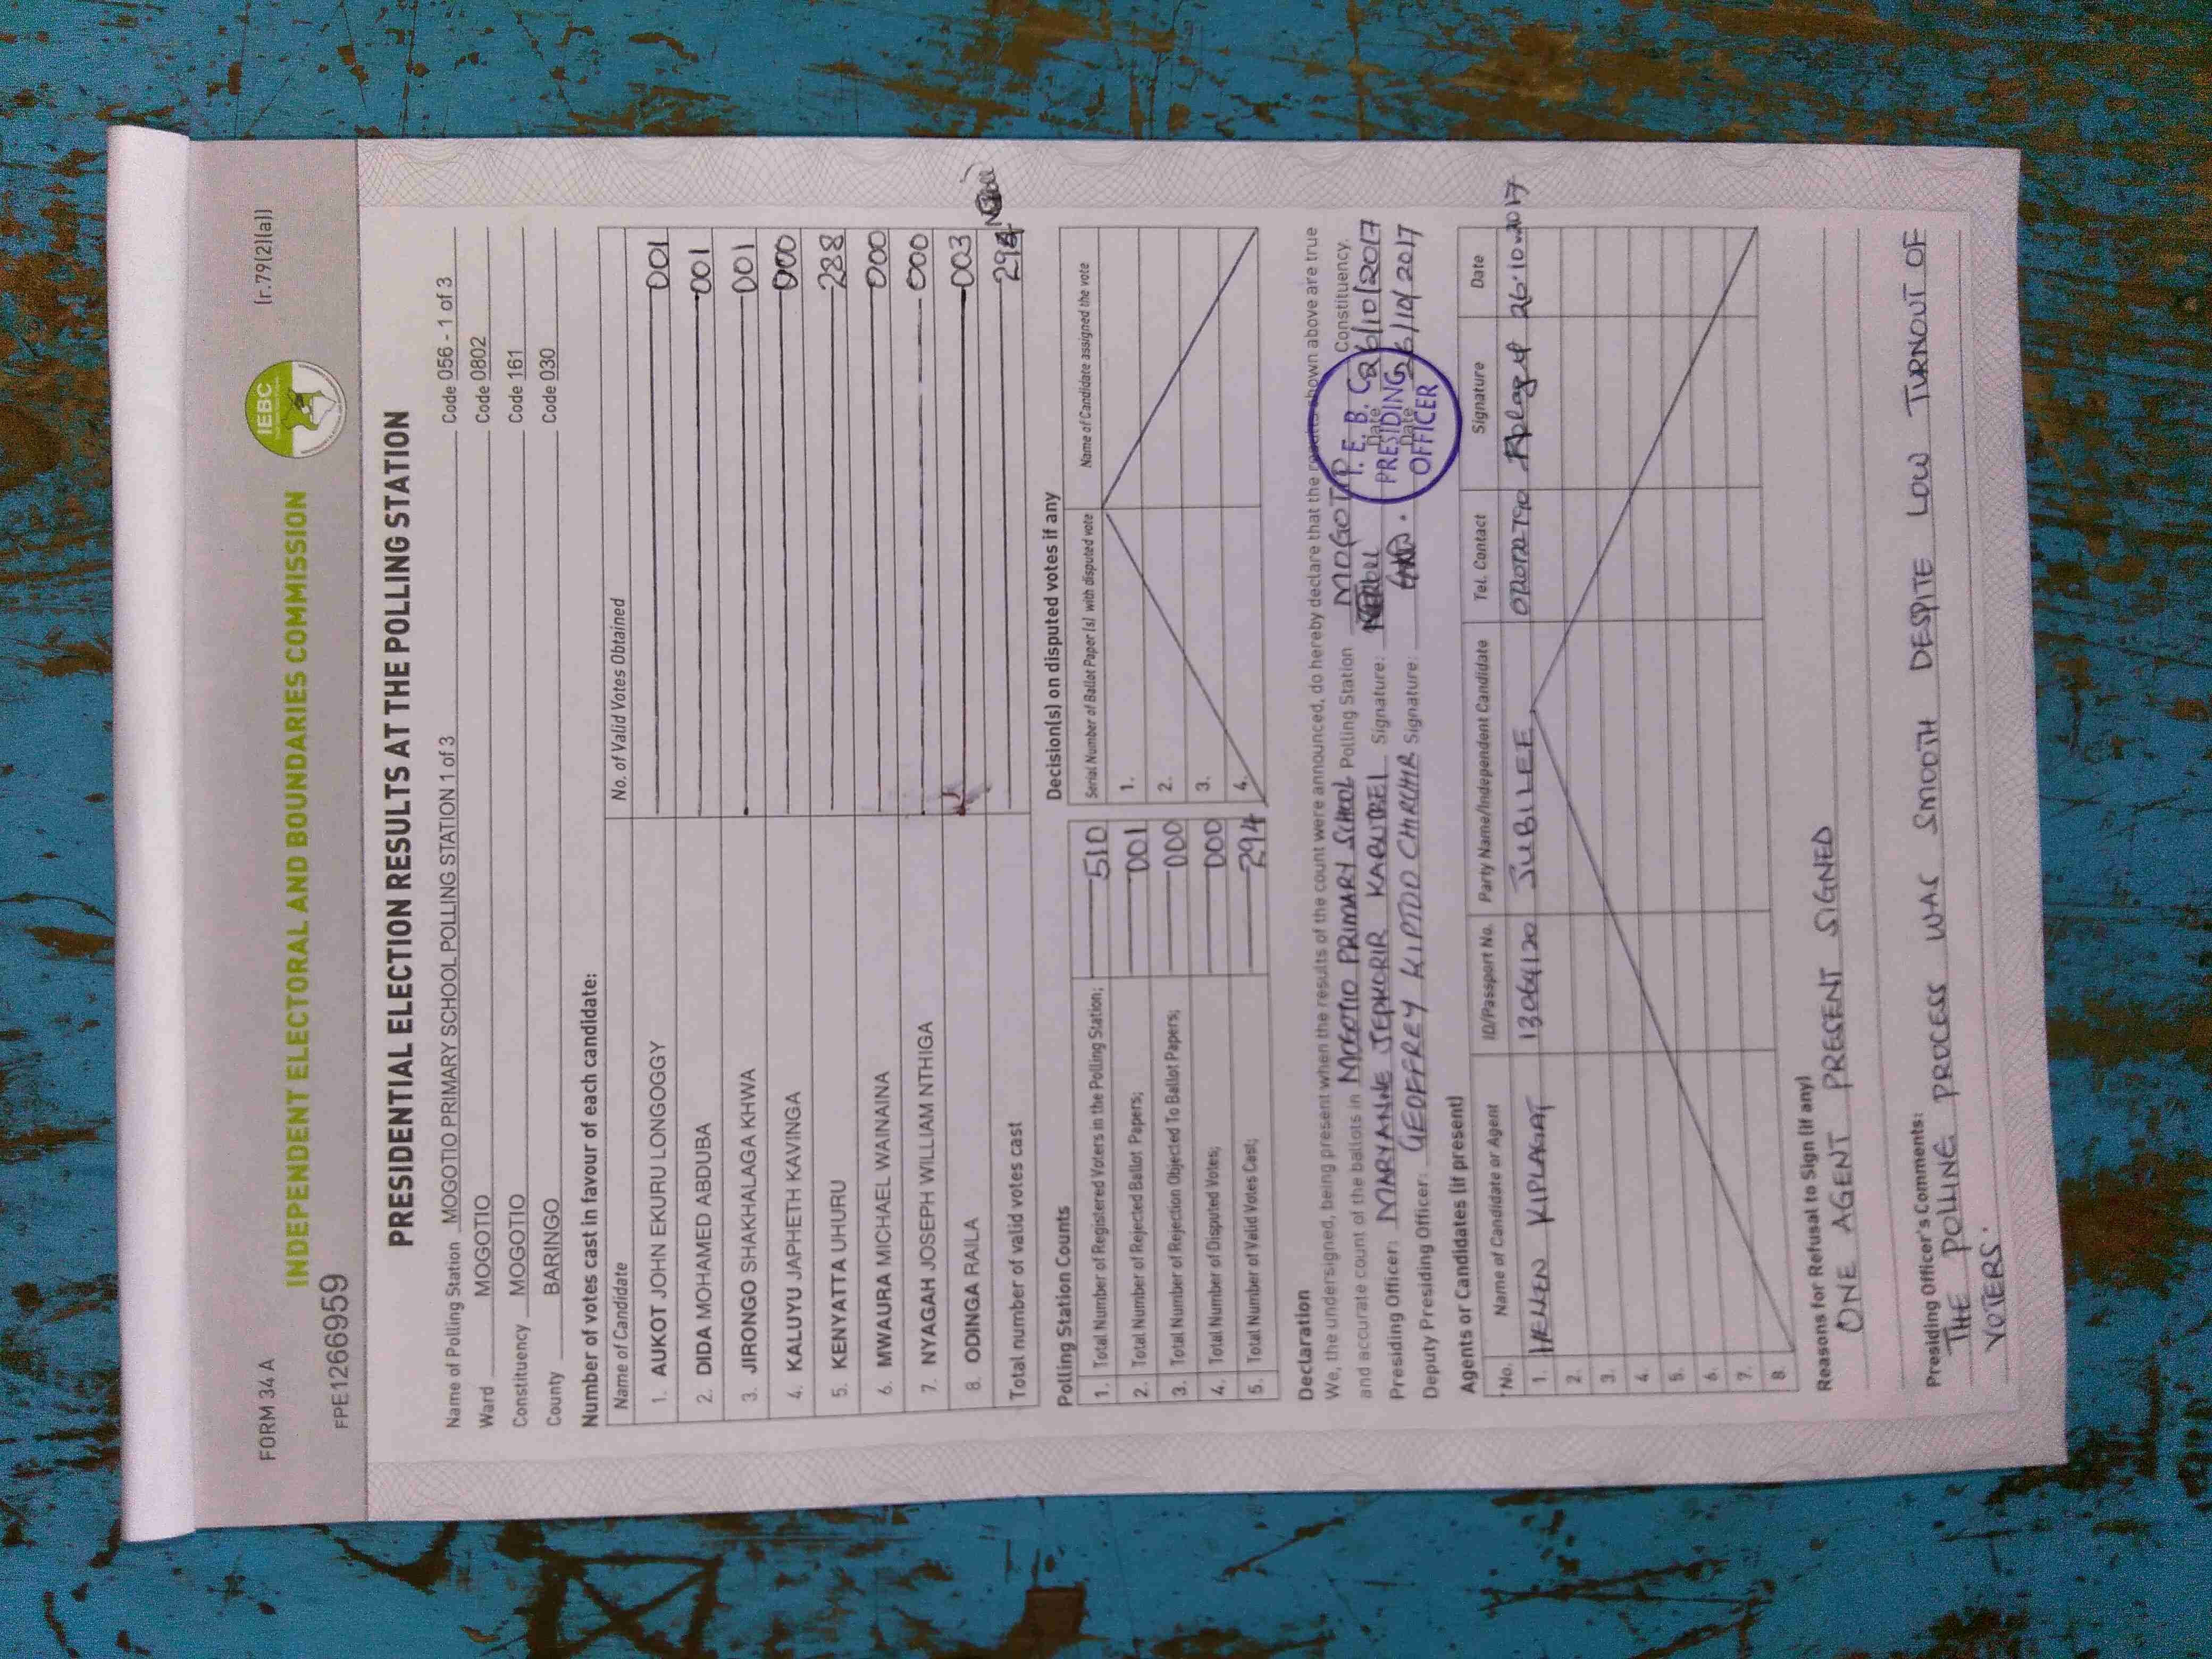 FORM 34 A
[r.79(2)(a)]
IEBC
INDEPENDENT ELECTORAL AND BOUNDARIES COMMISSION
FPE1266959
PRESIDENTIAL ELECTION RESULTS AT THE POLLING STATION
Name of Polling Station MOGOTIO PRIMARY SCHOOL POLLING STATION 1 of 3 Code 056 - 1 of 3
Ward MOGOTIO Code 0802
Constituency MOGOTIO Code 161
County BARINGO Code 030
Number of votes cast in favour of each candidate:
Name of Candidate No. of Valid Votes Obtained
1. AUKOT JOHN EKURU LONGOGGY 001
2. DIDA MOHAMED ABDUBA 001
3. JIRONGO SHAKHALAGA KHWA 001
4. KALUYU JAPHETH KAVINGA 000
5. KENYATTA UHURU 288
6. MWAURA MICHAEL WAINAINA 000
7. NYAGAH JOSEPH WILLIAM NTHIGA 000
8. ODINGA RAILA 003
Total number of valid votes cast 294
Polling Station Counts
1. Total Number of Registered Voters in the Polling Station; 510
2. Total Number of Rejected Ballot Papers; 001
3. Total Number of Rejection Objected To Ballot Papers; 000
4. Total Number of Disputed Votes; 000
5. Total Number of Valid Votes Cast; 294
Decision(s) on disputed votes if any
Serial Number of Ballot Paper (s) with disputed vote Name of Candidate assigned the vote
1.
2.
3.
4.
Declaration
We, the undersigned, being present when the results of the count were announced, do hereby declare that the results shown above are true
and accurate count of the ballots in MOGOTIO PRIMARY SCHOOL Polling Station MOGOTIO Constituency.
Presiding Officer: MARYANNE JEPKORIR KABUTBEI Signature: Date 26/10/2017
Deputy Presiding Officer: GEOFFREY KIPTOO CHIRCHIR Signature: Date 26/10/2017
I.E.B.C
PRESIDING
OFFICER
Agents or Candidates (if present)
*No. Name of Candidate or Agent ID/Passport No. Party Name/Independent Candidate Tel. Contact Signature Date
1. HELLEN KIPLAGAT 13064120 JUBILEE 26.10.2017
2.
3.
4.
5.
6.
7.
8.
Reasons for Refusal to Sign (if any)
ONE AGENT PRESENT SIGNED
Presiding Officer's Comments:
THE POLLING PROCESS WAS SMOOTH DESPITE LOW TURNOUT OF
VOTERS.